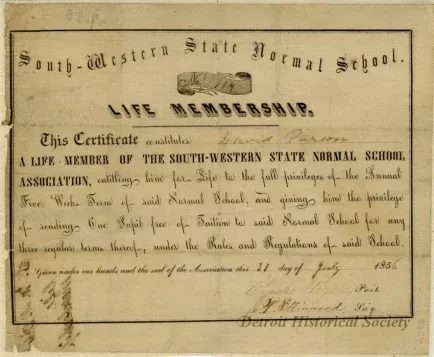 South-Western State Normal School.
No. 119
LIFE MEMBERSHIP.
This Certificate constitutes David Pierson
A LIFE MEMBER OF THE SOUTH-WESTERN STATE NORMAL SCHOOL
ASSOCIATION, entitling him for Life to the full privileges of the Annual
Five Weeks Term of said Normal School, and giving him the privilege
of sending One Pupil free of Tuition to said Normal School for any
three regular terms thereof, under the Rules and Regulations of said School.
Given under our hands and the seal of the Association this 21 day of July 1856
Prest.
Ellinwood Sec'y.
Detroit Historical Society